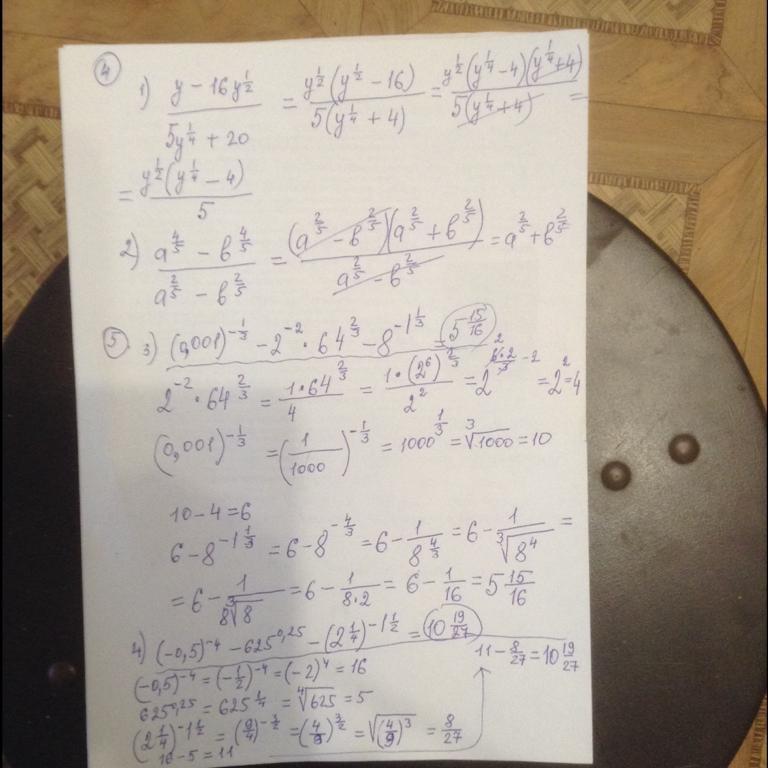 ④
1) (y − 16y^(1/2)) / (5y^(1/4) + 20) = y^(1/2)(y^(1/2) − 16) / 5(y^(1/4) + 4) = y^(1/2)(y^(1/4) − 4)(y^(1/4) + 4) / 5(y^(1/4) + 4) =
= y^(1/2)(y^(1/4) − 4) / 5
2) (a^(4/5) − b^(4/5)) / (a^(2/5) − b^(2/5)) = (a^(2/5) − b^(2/5))(a^(2/5) + b^(2/5)) / (a^(2/5) − b^(2/5)) = a^(2/5) + b^(2/5)
⑤ 3) (0,001)^(−1/3) − 2^(−2) · 64^(2/3) − 8^(−1 1/3) = 5 15/16
2^(−2) · 64^(2/3) = 1·64^(2/3) / 4 = 1·(2^6)^(2/3) / 2^2 = 2^(6·2/3 − 2) = 2^2 = 4
(0,001)^(−1/3) = (1/1000)^(−1/3) = 1000^(1/3) = ∛1000 = 10
10 − 4 = 6
6 − 8^(−1 1/3) = 6 − 8^(−4/3) = 6 − 1/8^(4/3) = 6 − 1/∛(8^4) =
= 6 − 1/(8∛8) = 6 − 1/(8·2) = 6 − 1/16 = 5 15/16
4) (−0,5)^(−4) − 625^(0,25) − (2 1/4)^(−1 1/2) = 10 19/27
11 − 8/27 = 10 19/27
(−0,5)^(−4) = (−1/2)^(−4) = (−2)^4 = 16
625^(0,25) = 625^(1/4) = ∜625 = 5
(2 1/4)^(−1 1/2) = (9/4)^(−3/2) = (4/9)^(3/2) = √((4/9)^3) = 8/27
16 − 5 = 11